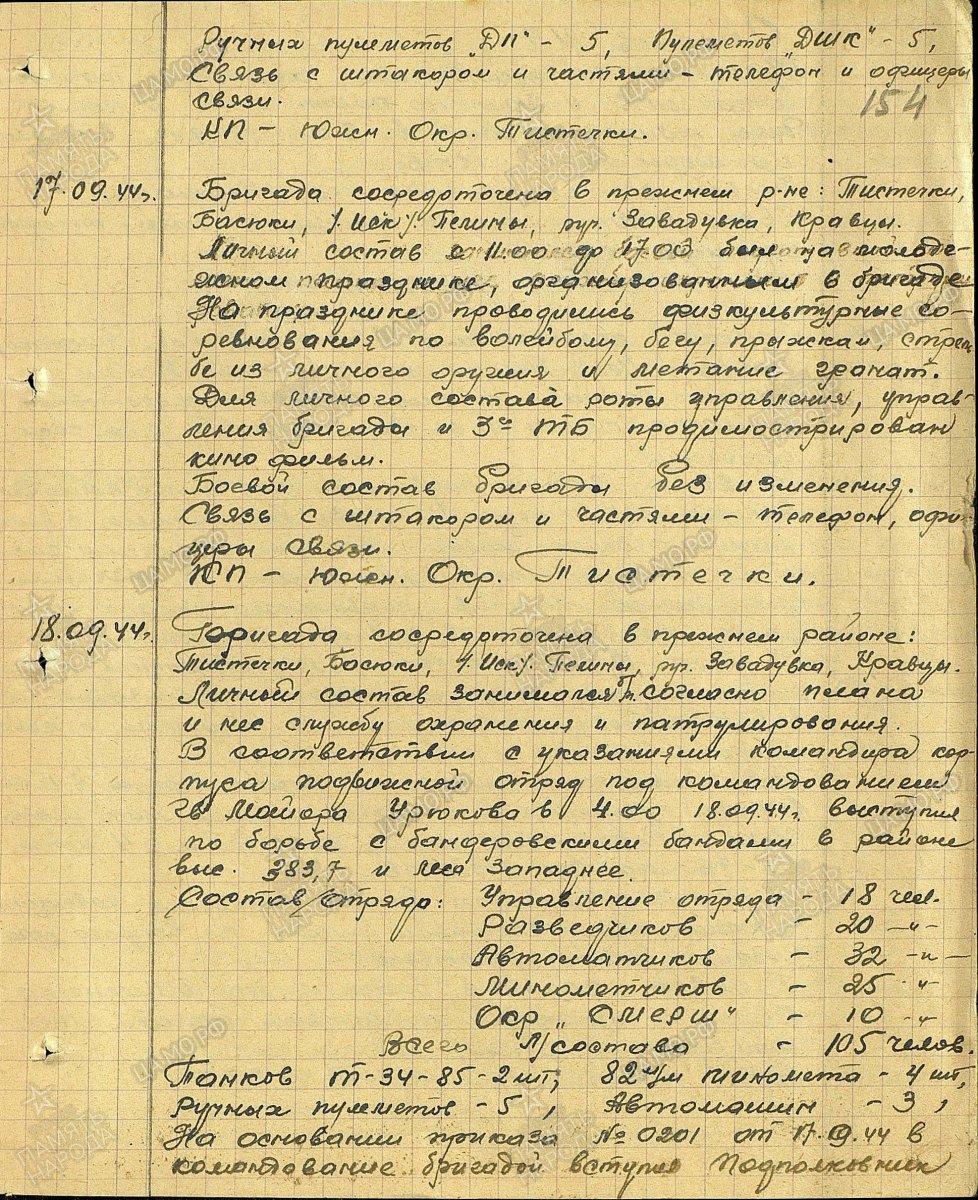 Ручных пулеметов „ДП" - 5, Пулеметов „ДШК" - 5,
Связь с штакором и частями - телефон и офицеры
связи.
154
КП - Южн. Окр. Тистечки.
17.09.44г.
Бригада сосредоточена в прежнем р-не: Тистечки,
Басюки, /Иск/ Пелины, Завадувка, Кравцы.
Личный состав с 11.00 до 17.00 был на молоде-
жном празднике, организованным в бригаде
На празднике проводились физкультурные со-
ревнования по волейболу, бегу, прыжкам, стрель
бе из личного оружия и метание гранат.
Для личного состава роты управления, управ-
ления бригады и 3го ТБ продимострирован
кино фильм.
Боевой состав бригады без изменения.
Связь с штакором и частями - телефон, офи
церы связи.
КП - Южн. Окр. Тистечки.
18.09.44г.
Бригада сосредоточена в прежнем районе:
Тистечки, Басюки, /Иск/ Пелины, Завадувка, Кравцы.
Личный состав занимался согласно плана
и нес службу охранения и патрулирования.
В соответствии с указаниями командира кор
пуса подвижной отряд под командованием
Гв Майора Урюкова в 4.00 18.09.44г. выступил
по борьбе с бандеровскими бандами в районе
выс. 383,7 и леса Западнее.
Состав отряда: Управление отряда - 18 чел.
Разведчиков - 20 -"-
Автоматчиков - 32 -"-
Минометчиков - 25 -"-
Оср „СМЕРШ" - 10 -"-
Всего л/состава - 105 челов.
Танков Т-34-85-2 шт, 82 м/м миномета - 4 шт,
Ручных пулеметов - 5, Автомашин - 3,
На основании приказа № 0201 от 17.9.44 в
командование бригадой вступил Подполковник